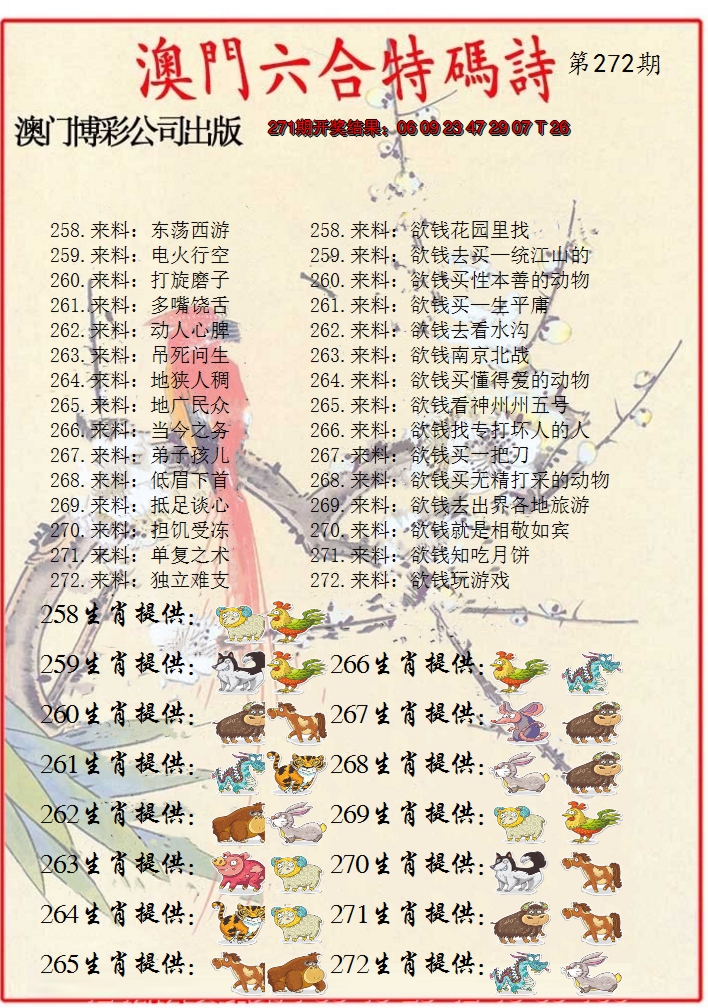 澳門六合特碼詩 第272期
澳门博彩公司出版 271期开奖结果：06 09 23 47 29 07 T 26
258.来料：东荡西游 258.来料：欲钱花园里找
259.来料：电火行空 259.来料：欲钱去买一统江山的
260.来料：打旋磨子 260.来料：欲钱买性本善的动物
261.来料：多嘴饶舌 261.来料：欲钱买一生平庸
262.来料：动人心脾 262.来料：欲钱去看水沟
263.来料：吊死问生 263.来料：欲钱南京北战
264.来料：地狭人稠 264.来料：欲钱买懂得爱的动物
265.来料：地广民众 265.来料：欲钱看神州州五号
266.来料：当今之务 266.来料：欲钱找专打坏人的人
267.来料：弟子孩儿 267.来料：欲钱买一把刀
268.来料：低眉下首 268.来料：欲钱买无精打采的动物
269.来料：抵足谈心 269.来料：欲钱去出界各地旅游
270.来料：担饥受冻 270.来料：欲钱就是相敬如宾
271.来料：单复之术 271.来料：欲钱知吃月饼
272.来料：独立难支 272.来料：欲钱玩游戏
258生肖提供：
259生肖提供： 266生肖提供：
260生肖提供： 267生肖提供：
261生肖提供： 268生肖提供：
262生肖提供： 269生肖提供：
263生肖提供： 270生肖提供：
264生肖提供： 271生肖提供：
265生肖提供： 272生肖提供：